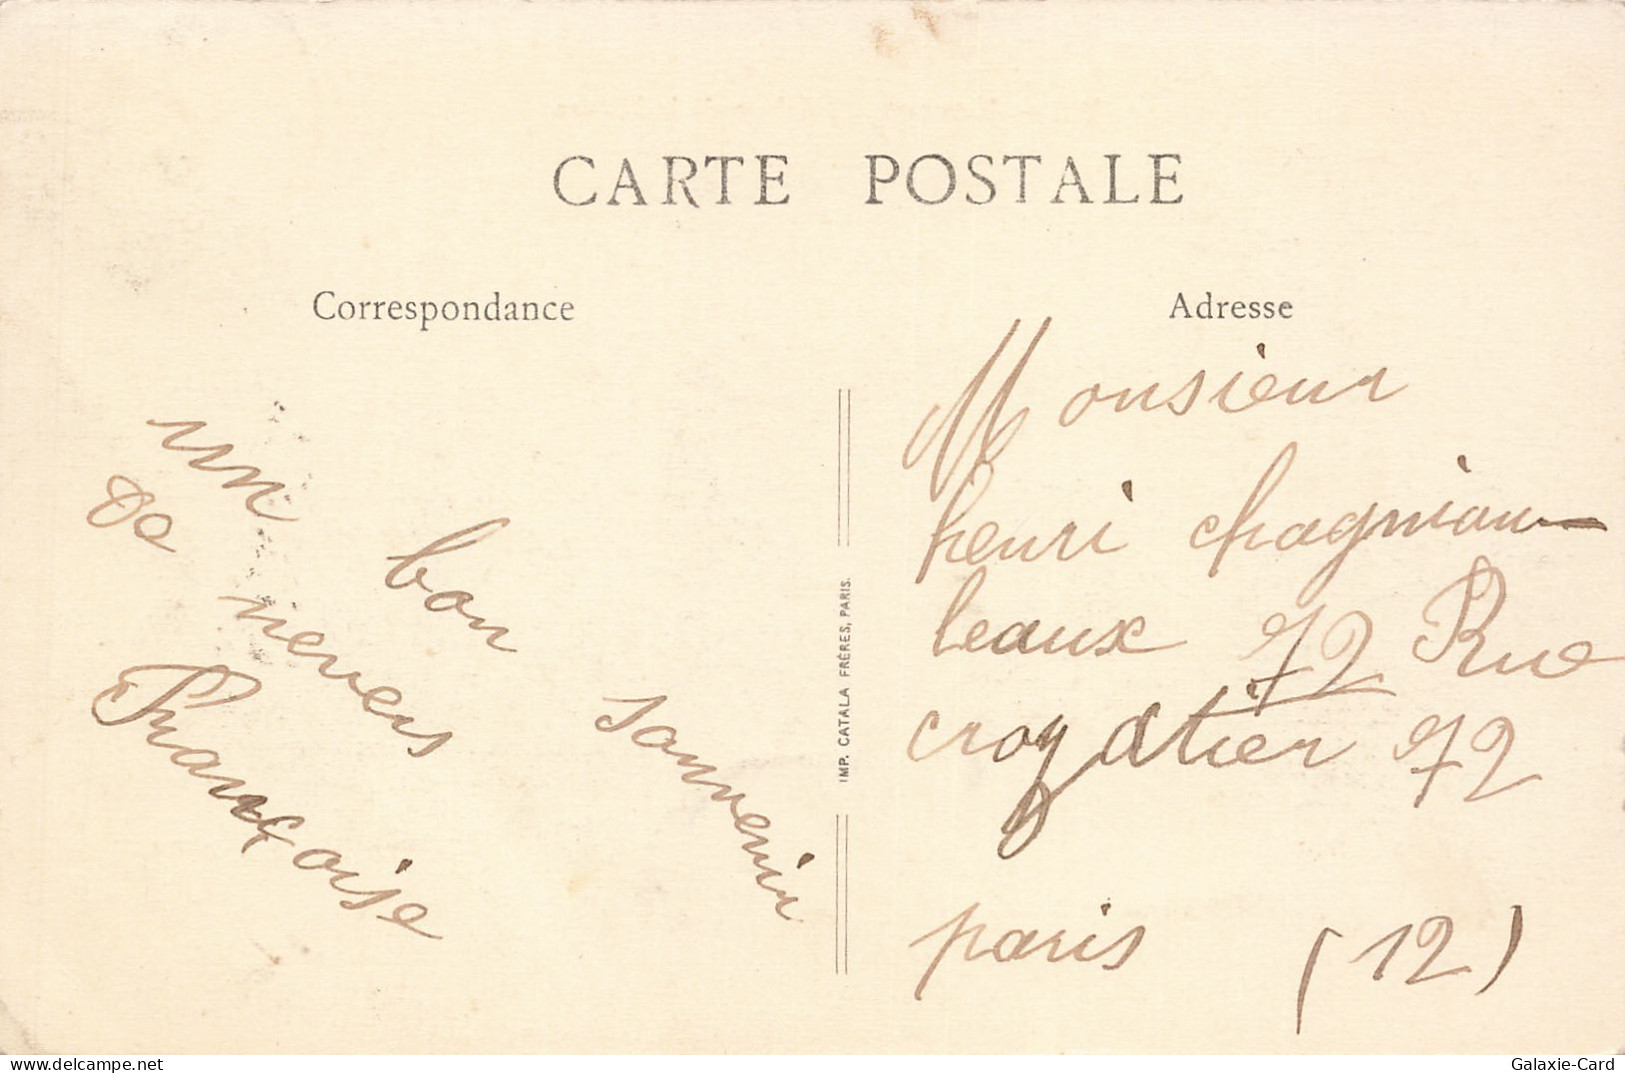 CARTE POSTALE
Correspondance
un bon souvenir
de nevers
Françoise
IMP. CATALA FRÈRES, PARIS.
Adresse
Monsieur
henri chagniau-
leaux 72 Rue
crozatier 72
paris (12)
www.delcampe.net
Galaxie-Card